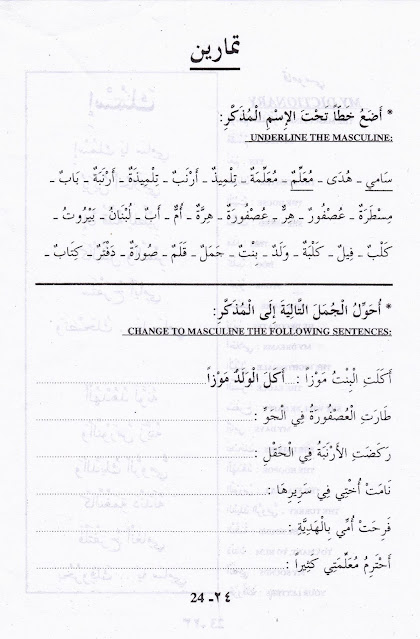 تمارين
* أَضَعُ خَطّاً تَحْتَ الإِسْمِ الْمُذَكَّرِ:
UNDERLINE THE MASCULINE:
سَامِي ـ هُدَى ـ مُعَلِّمٌ ـ مُعَلِّمَةٌ ـ تِلْمِيذٌ ـ أَرْنَبٌ ـ تِلْمِيذَةٌ ـ أَرْنَبَةٌ ـ بَابٌ ـ
مِسْطَرَةٌ ـ عُصْفُورٌ ـ هِرٌّ ـ عُصْفُورَةٌ ـ هِرَّةٌ ـ أُمٌّ ـ أَبٌ ـ لُبْنَانُ ـ بَيْرُوتُ ـ
كَلْبٌ ـ فِيلٌ ـ كَلْبَةٌ ـ وَلَدٌ ـ بِنْتٌ ـ جَمَلٌ ـ قَلَمٌ ـ صُورَةٌ ـ دَفْتَرٌ ـ كِتَابٌ ـ
* أُحَوِّلُ الْجُمَلَ التَّالِيَةَ إِلَى الْمُذَكَّرِ:
CHANGE TO MASCULINE THE FOLLOWING SENTENCES:
أَكَلَتِ الْبِنْتُ مَوْزاً : ...أَكَلَ الْوَلَدُ مَوْزاً
طَارَتِ الْعُصْفُورَةُ فِي الْجَوِّ :
رَكَضَتِ الأَرْنَبَةُ فِي الْحَقْلِ :
نَامَتْ أُخْتِي فِي سَرِيرِهَا :
فَرِحَتْ أُمِّي بِالْهَدِيَّةِ :
أَحْتَرِمُ مُعَلِّمَتِي كَثِيراً :
24 ـ ٢٤